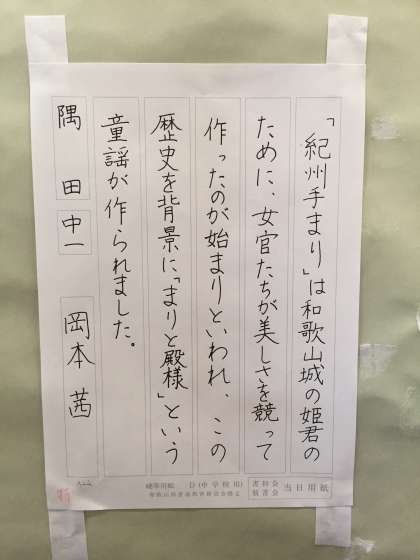 「紀州手まり」は和歌山城の姫君の
ために、女官たちが美しさを競って
作ったのが始まりといわれ、この
歴史を背景に「まりと殿様」という
童謡が作られました。
隅田 中一 岡本茜
硬筆用紙 D(中学校用)
当日用紙